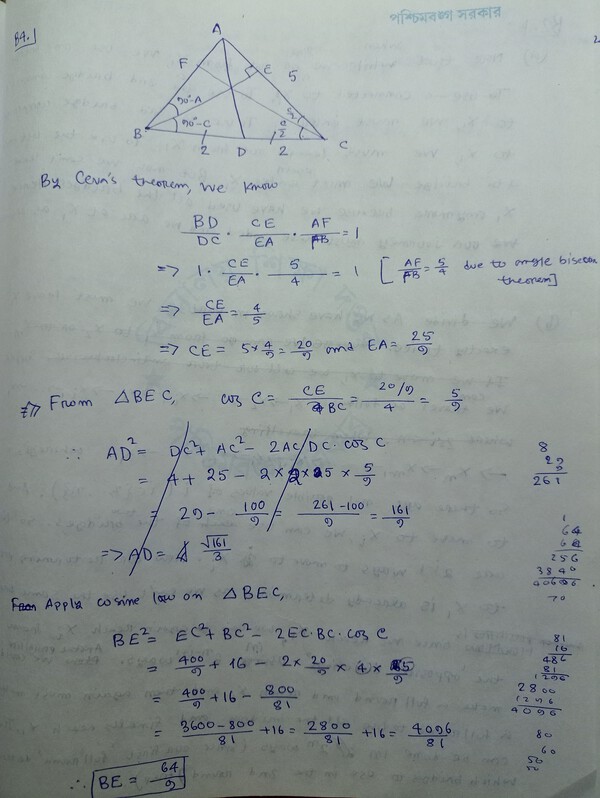 পশ্চিমবঙ্গ সরকার
B4.
A
F
E
5
90°-A
90°-C
B
2
D
2
C
C/2
By Ceva's theorem, we know
BD/DC · CE/EA · AF/FB = 1
=> 1 · CE/EA · 5/4 = 1 [ AF/FB = 5/4 due to angle bisector theorem]
=> CE/EA = 4/5
=> CE = 5 × 4/9 = 20/9 and EA = 25/9
From △BEC, cos C = CE/BC = 20/9/4 = 5/9
∴ AD² = DC² + AC² - 2AC·DC·cos C
= 4 + 25 - 2×2×5 × 5/9
= 29 - 100/9 = 261-100/9 = 161/9
=> AD = √161/3
Apply cosine law on △BEC,
BE² = EC² + BC² - 2EC·BC·cos C
= 400/9 + 16 - 2× 20/9 × 4 × 5/9
= 400/9 + 16 - 800/81
= 3600-800/81 + 16 = 2800/81 + 16 = 4096/81
∴ BE = 64/9
8
29
9
261
1
64
64
256
3840
4096
70
81
16
486
81
1296
2800
1296
4096
80
60
50
50